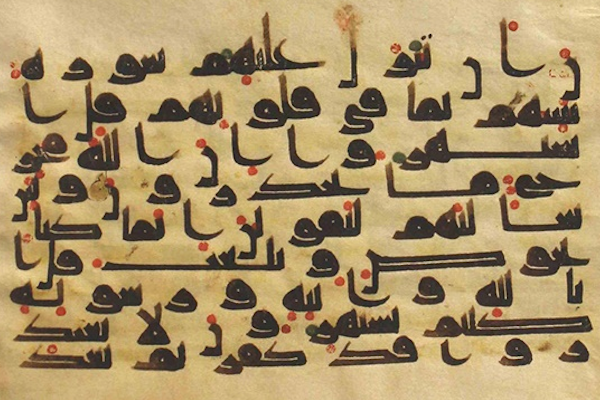 ن ان تنزل عليهم سورة
تنبيهم بما في قلوبهم قل ا
ستهزوا ان الله مخر
ج ما تحذرون ولين
سالتهم ليقولن انما كنا
نخوض ونلعب قل ا
بالله وايته ورسوله
كنتم تستهزون لا تعتذ
روا قد كفرتم بعد